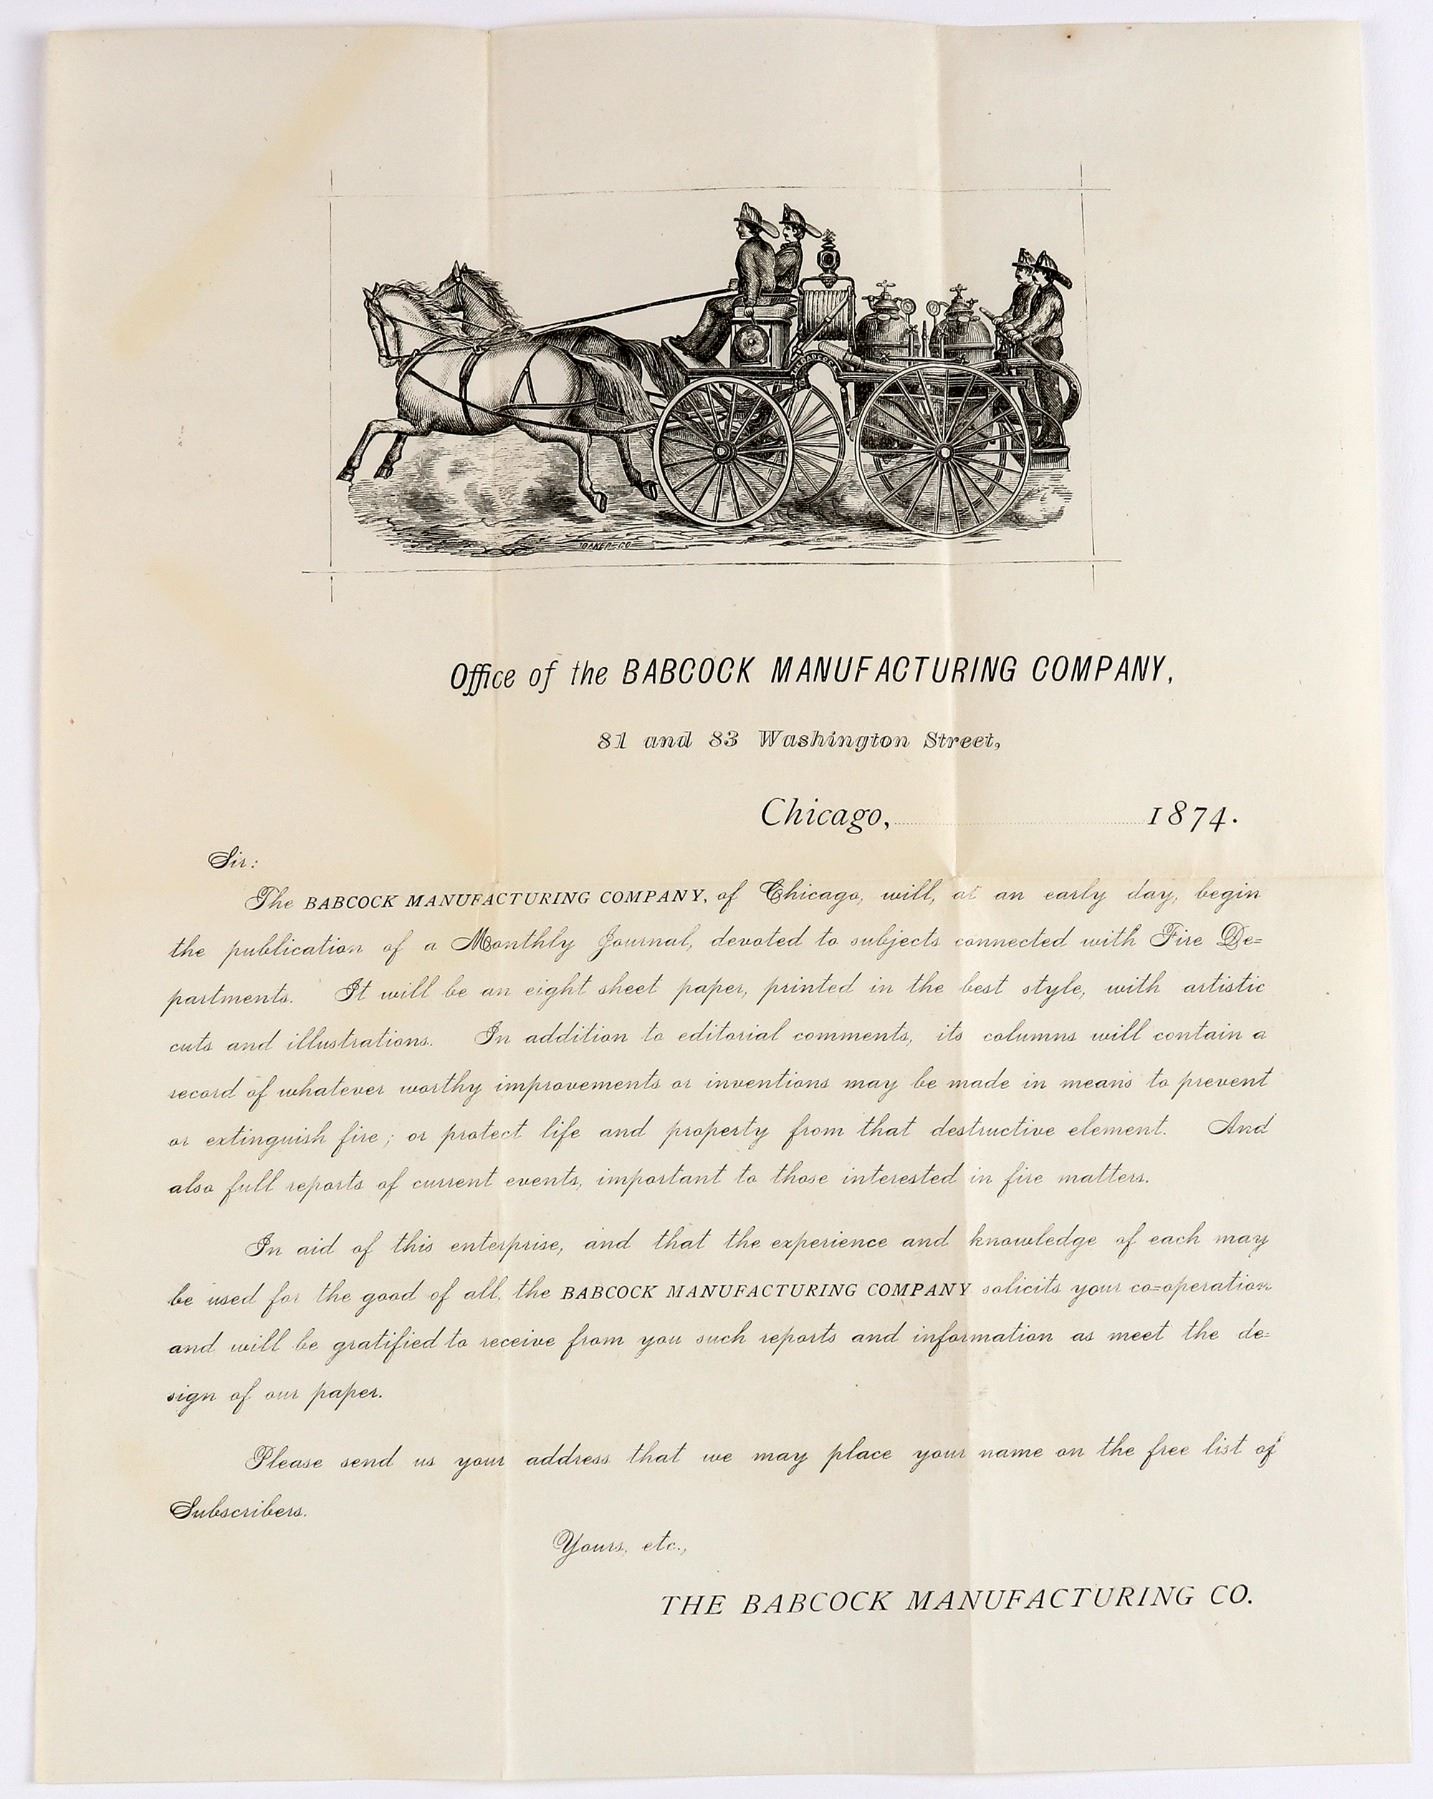 Office of the BABCOCK MANUFACTURING COMPANY,
81 and 83 Washington Street,
Chicago, 1874.
Sir:
The BABCOCK MANUFACTURING COMPANY, of Chicago, will, at an early day, begin
the publication of a Monthly Journal, devoted to subjects connected with Fire De=
partments. It will be an eight sheet paper, printed in the best style, with artistic
cuts and illustrations. In addition to editorial comments, its columns will contain a
record of whatever worthy improvements or inventions may be made in means to prevent
or extinguish fire; or protect life and property from that destructive element. And
also full reports of current events, important to those interested in fire matters.
In aid of this enterprise, and that the experience and knowledge of each may
be used for the good of all, the BABCOCK MANUFACTURING COMPANY solicits your co=operation
and will be gratified to receive from you such reports and information as meet the de=
sign of our paper.
Please send us your address that we may place your name on the free list of
Subscribers.
Yours, etc.,
THE BABCOCK MANUFACTURING CO.